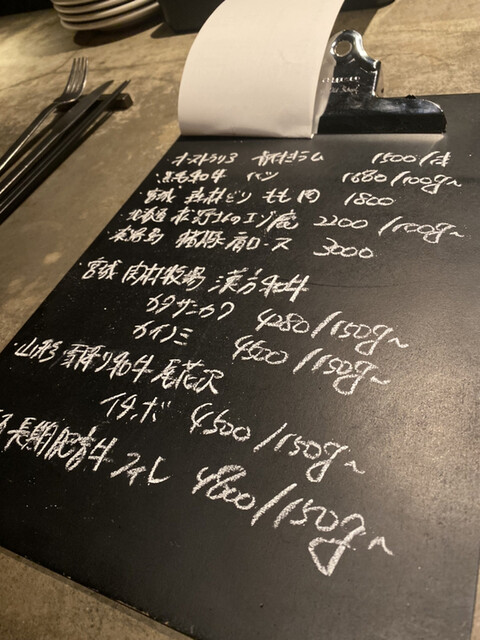 オーストラリア 骨付きラム 1500/本
・黒毛和牛 ハツ 1680/100g~
・宮城 森林どり もも肉 1800
・北海道 エゾ鹿 2200/100g~
豚肩ロース 3000
・宮城 関村牧場 漢方和牛
カタサンカク 4280/150g~
カイノミ 4600/150g~
・山形 雪降り和牛 尾花沢
イチボ 4500/150g~
長期肥育牛 フィレ 4800/150g~